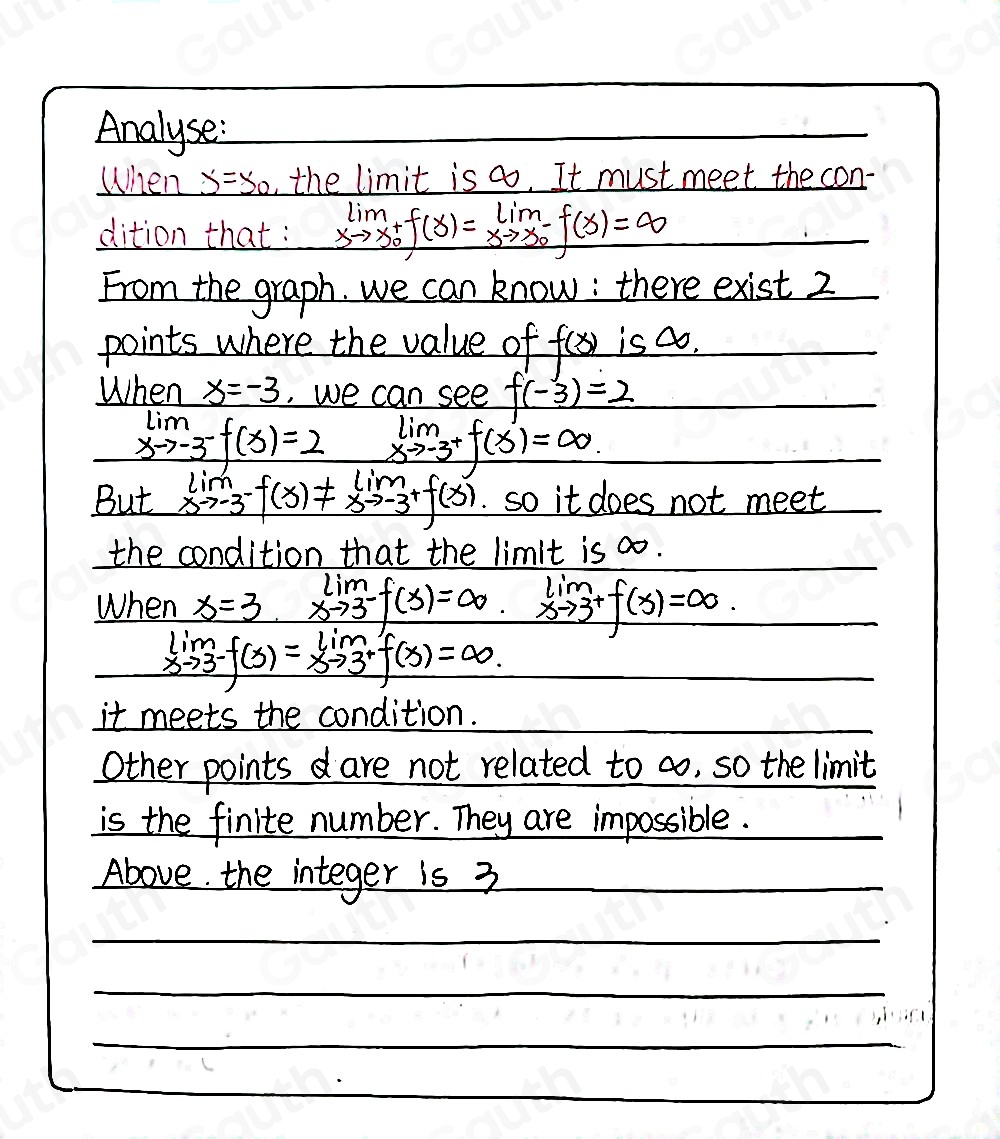 Analyse:
When x=x₀, the limit is ∞. It must meet the con-
dition that: lim x→x₀⁺ f(x) = lim x→x₀⁻ f(x) = ∞
From the graph. we can know: there exist 2
points where the value of f(x) is ∞.
When x=-3, we can see f(-3)=2
lim x→-3⁻ f(x)=2 lim x→-3⁺ f(x)=∞.
But lim x→-3⁻ f(x) ≠ lim x→-3⁺ f(x). so it does not meet
the condition that the limit is ∞.
When x=3. lim x→3⁻ f(x)=∞. lim x→3⁺ f(x)=∞.
lim x→3⁻ f(x) = lim x→3⁺ f(x)=∞.
it meets the condition.
Other points d are not related to ∞, so the limit
is the finite number. They are impossible.
Above. the integer is 3